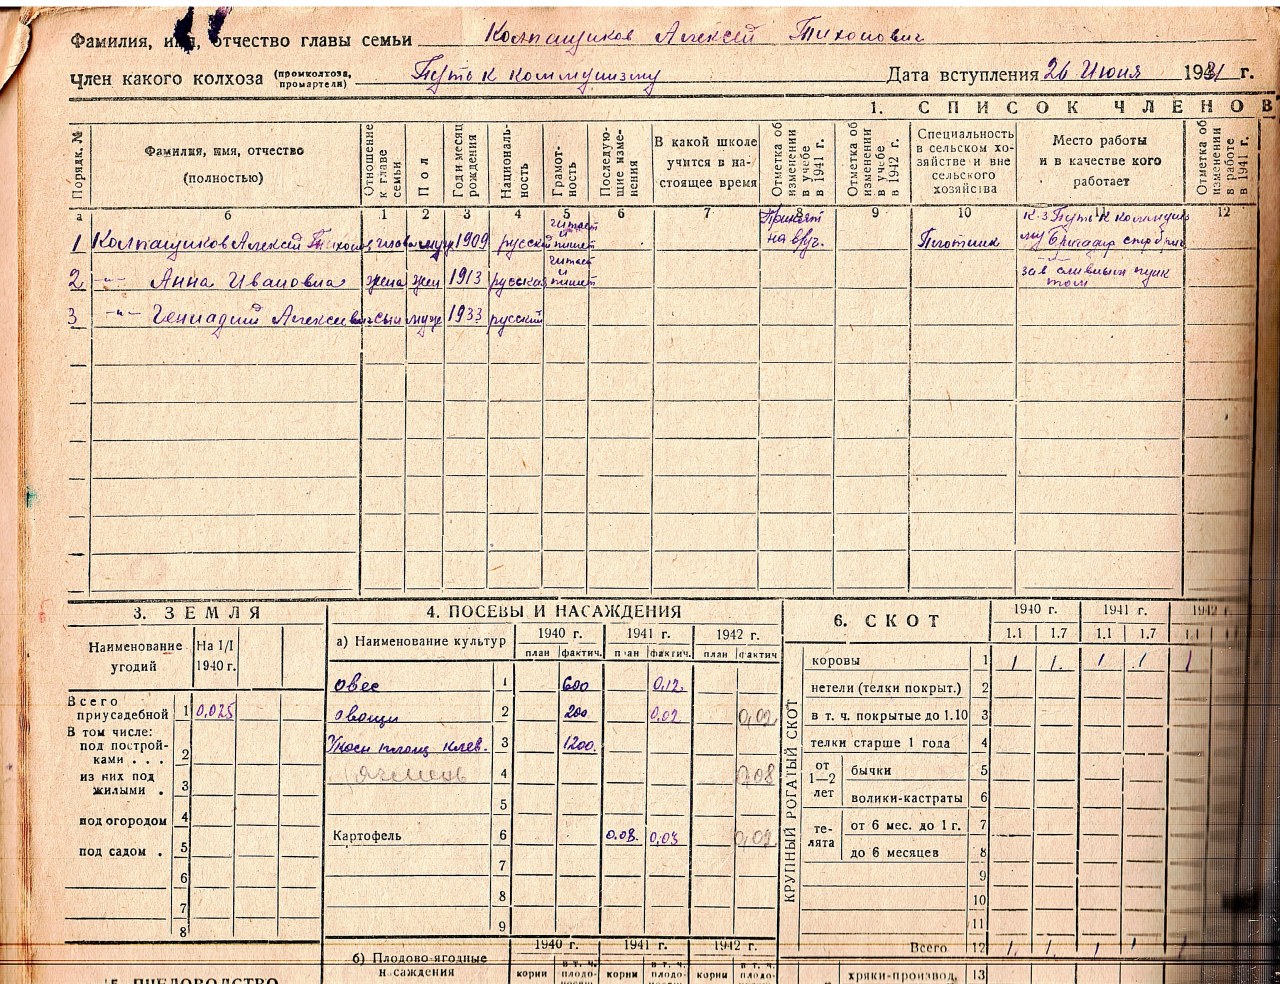 Фамилия, имя, отчество главы семьи Колпащиков Алексей Тихонович
Член какого колхоза (промколхоза, промартели) Путь к коммунизму Дата вступления 26 Июня 1931 г.
1. СПИСОК ЧЛЕНОВ
Порядк. № Фамилия, имя, отчество (полностью) Отношение к главе семьи Пол Год и месяц рождения Националь-ность Грамот-ность Последую-щие изме-нения В какой школе учится в на-стоящее время Отметка об изменении в учебе в 1941 г. Отметка об изменении в учебе в 1942 г. Специальность в сельском хо-зяйстве и вне сельского хозяйства Место работы и в качестве кого работает Отметка об изменении в работе в 1941 г.
а б 1 2 3 4 5 6 7 8 9 10 11 12
1 Колпащиков Алексей Тихонов глава муж 1909 русский читает и пишет Плотник к-з Путь к коммунизму Бригадир
2 -"- Анна Ивановна жена жен 1913 русская читает и пишет зав сливным пунктом
3 -"- Геннадий Алексеевич сын муж 1933 русский
3. ЗЕМЛЯ
Наименование угодий На 1/I 1940 г.
Всего приусадебной 1 0,025
В том числе:
под построй-ками . . . 2
из них под жилыми . 3
под огородом 4
под садом . 5
6
7
8
4. ПОСЕВЫ И НАСАЖДЕНИЯ
а) Наименование культур 1940 г. 1941 г. 1942 г.
план фактич. план фактич. план фактич
овес 1 600 0,12
овощи 2 200 0,02 0,02
Укосн площ клев. 3 1200
ячмень 4 0,08
5
Картофель 6 0.03 0,03 0,02
7
8
9
б) Плодово-ягодные насаждения 1940 г. 1941 г. 1942 г.
корни в т. ч. плодо- корни в т. ч. плодо- корни в т. ч. плодо-
6. СКОТ 1940 г. 1941 г. 1942 г.
1.1 1.7 1.1 1.7 1.1
КРУПНЫЙ РОГАТЫЙ СКОТ
коровы 1 1 1. 1 1 1
нетели (телки покрыт.) 2
в т. ч. покрытые до 1.10 3
телки старше 1 года 4
от 1—2 лет бычки 5
волики-кастраты 6
те-лята от 6 мес. до 1 г. 7
до 6 месяцев 8
9
10
11
Всего 12 1. 1. 1 1 1
хряки-производ. 13
5. ПЧЕЛОВОДСТВО